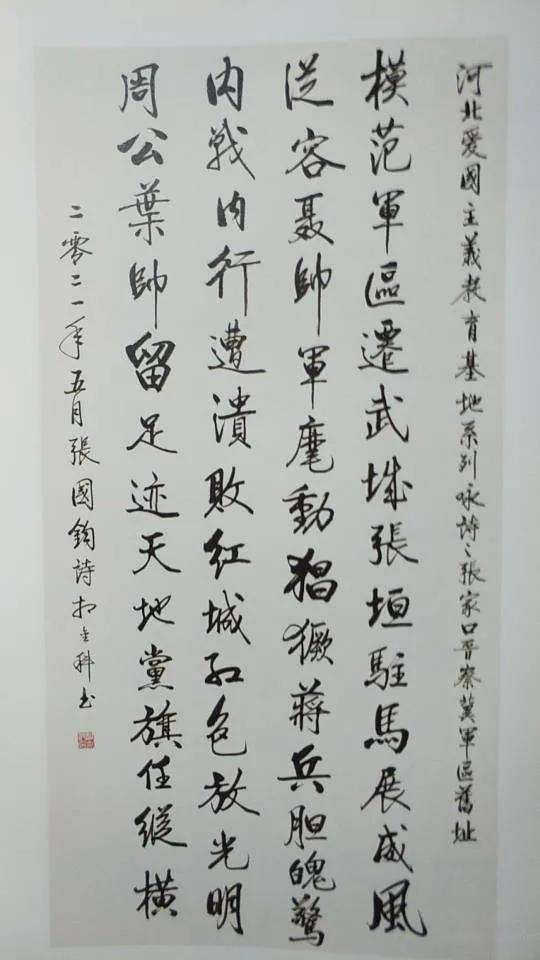 河北爱國主義教育基地系列咏詩之張家口晋察冀軍區舊址
模范軍區遷武城張垣駐馬展威風
從容聂帥軍麾動猖獗蔣兵胆魄驚
内戰内行遭潰敗红城红色放光明
周公葉帥留足迹天地黨旗任縱横
二零二一年五月張國鈞詩 科书